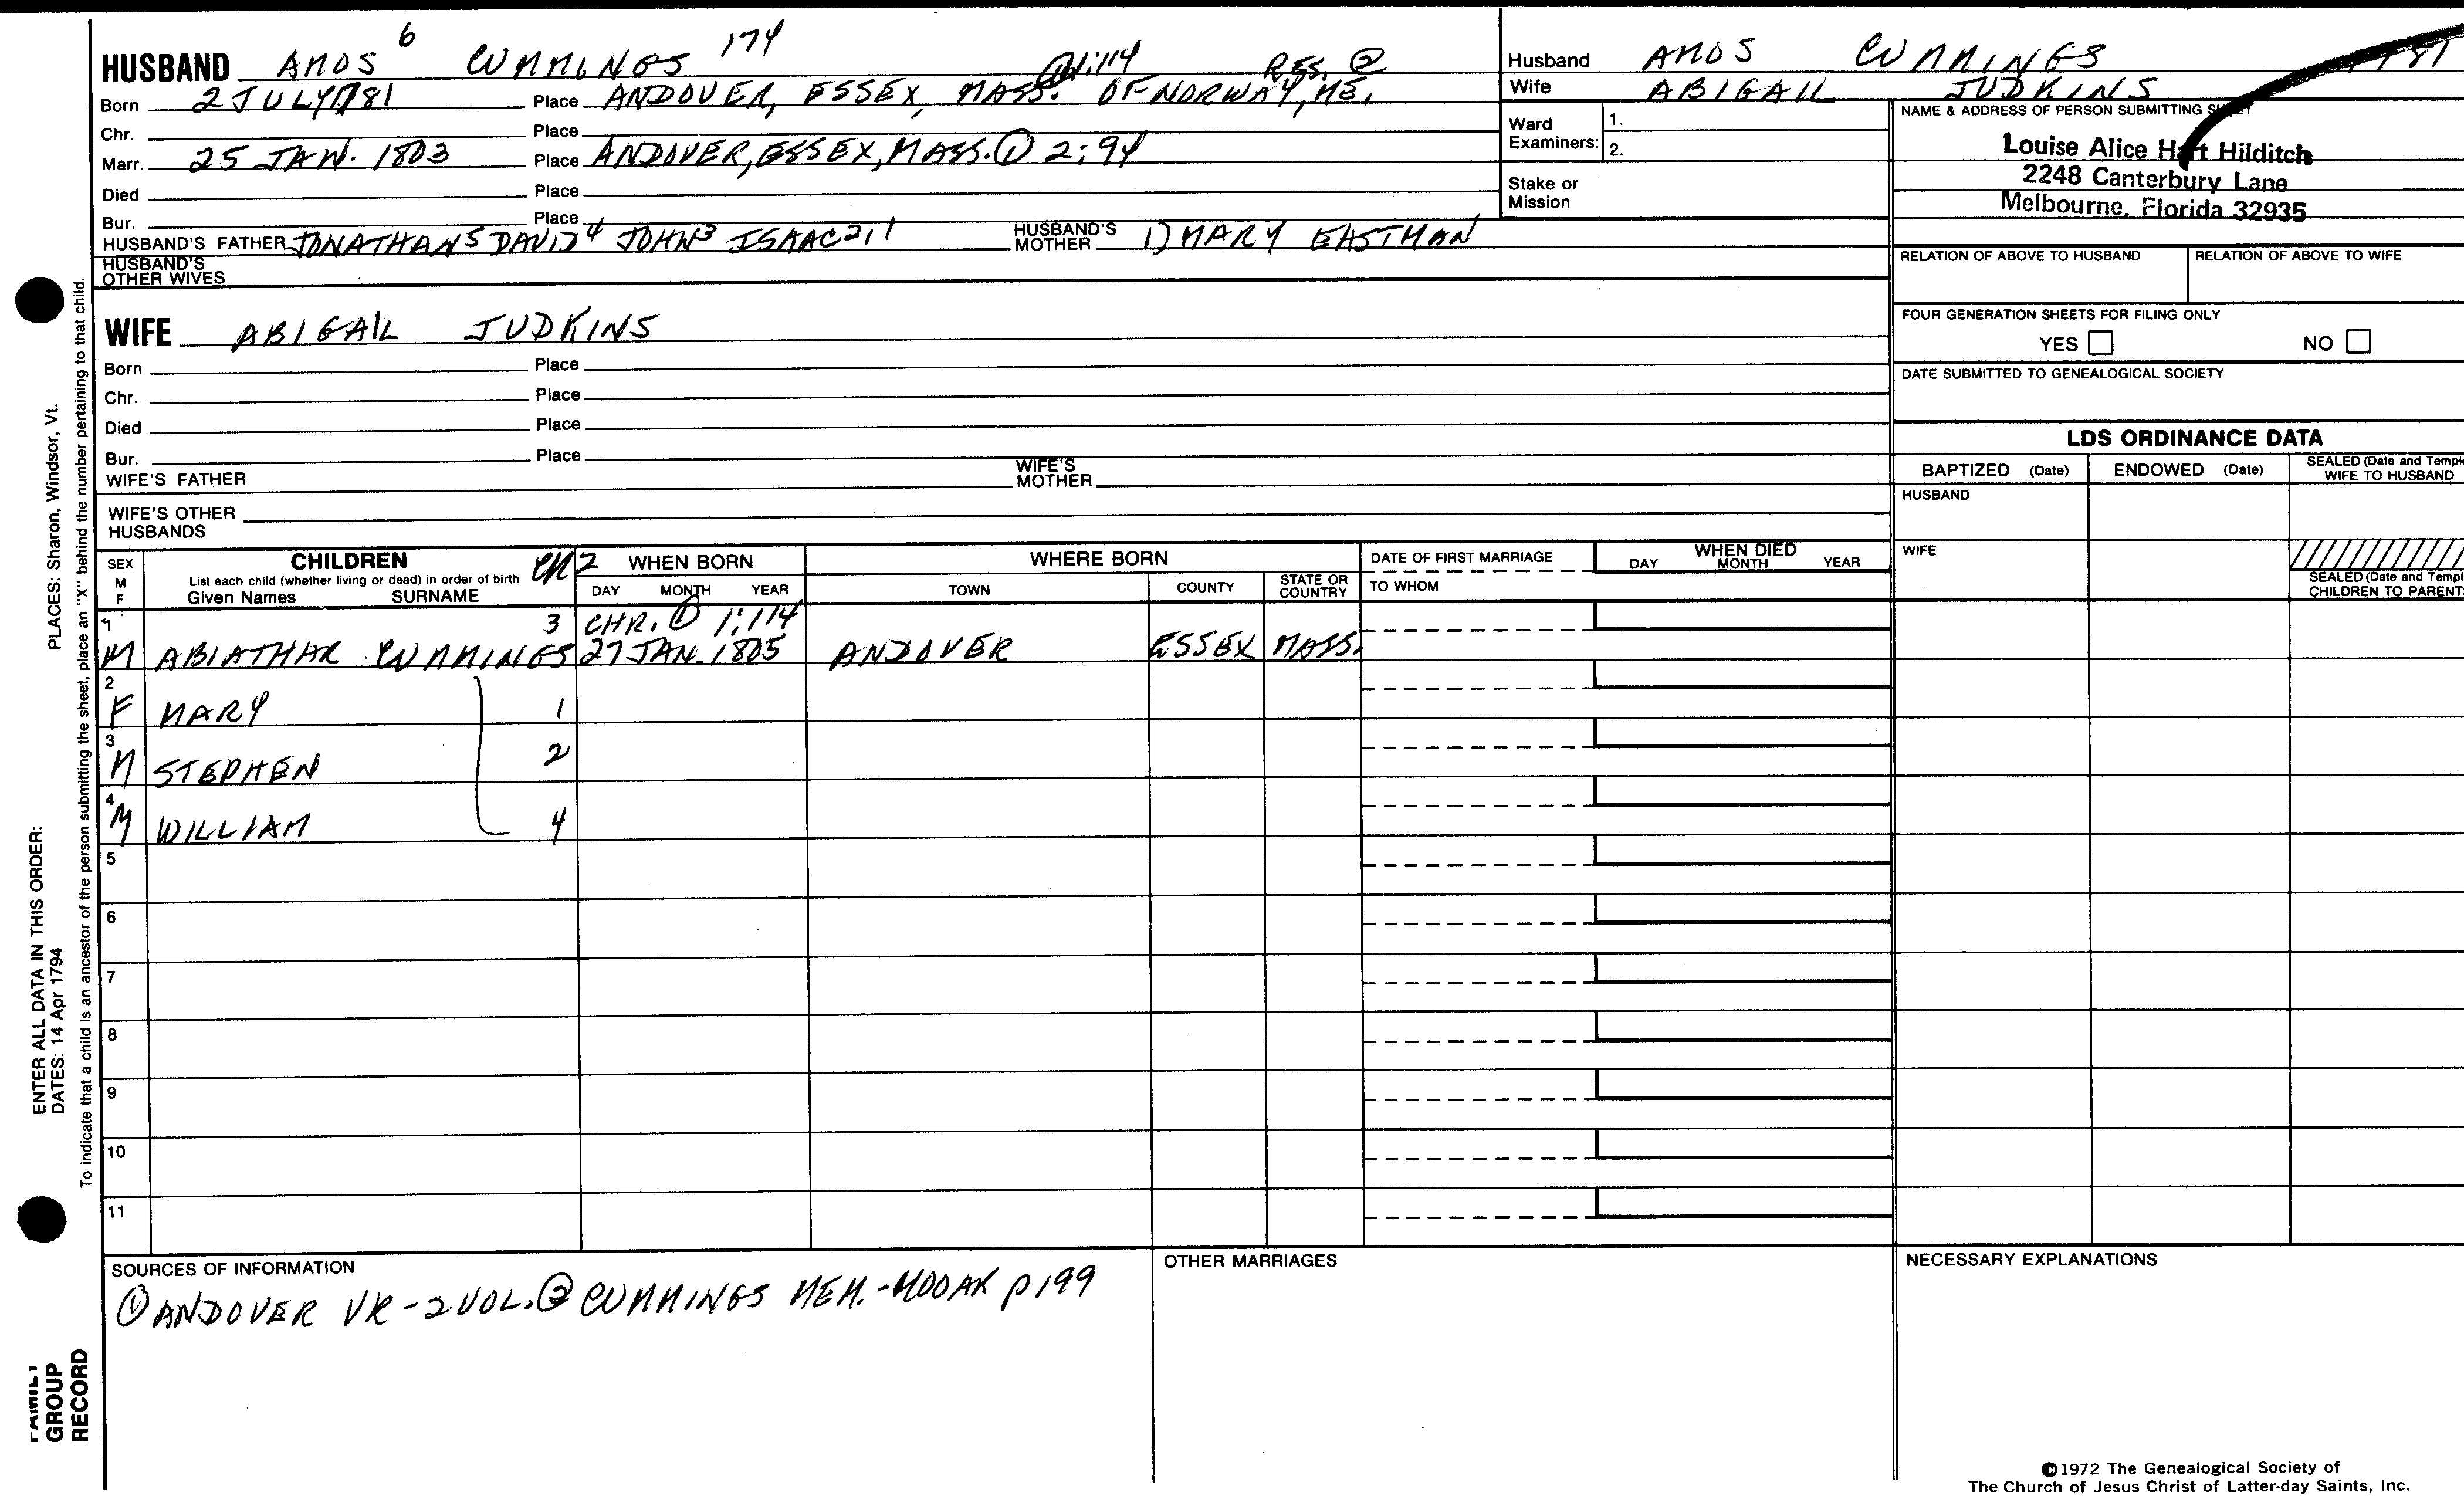 HUSBAND AMOS 6 CUMMINGS 174
① 1:114 RES. ②
Born 2 JULY 1781 Place ANDOVER, ESSEX, MASS. OF NORWAY, ME.
Chr. Place
Marr. 25 JAN. 1803 Place ANDOVER, ESSEX, MASS. ① 2:94
Died Place
Bur. Place
HUSBAND'S FATHER JONATHAN 5 DAVID 4 JOHN 3 ISAAC 2,1 HUSBAND'S MOTHER 1) MARY EASTMAN
HUSBAND'S OTHER WIVES
WIFE ABIGAIL JUDKINS
Born Place
Chr. Place
Died Place
Bur. Place
WIFE'S FATHER WIFE'S MOTHER
WIFE'S OTHER HUSBANDS
Husband AMOS CUMMINGS 1781
Wife ABIGAIL JUDKINS
Ward Examiners: 1.
2.
Stake or Mission
NAME & ADDRESS OF PERSON SUBMITTING SHEET
Louise Alice Hart Hilditch
2248 Canterbury Lane
Melbourne, Florida 32935
RELATION OF ABOVE TO HUSBAND RELATION OF ABOVE TO WIFE
FOUR GENERATION SHEETS FOR FILING ONLY
YES NO
DATE SUBMITTED TO GENEALOGICAL SOCIETY
LDS ORDINANCE DATA
BAPTIZED (Date) ENDOWED (Date) SEALED (Date and Templ
WIFE TO HUSBAND
HUSBAND
WIFE
SEALED (Date and Templ
CHILDREN TO PARENTS
SEX M F
CHILDREN
List each child (whether living or dead) in order of birth
Given Names SURNAME
WHEN BORN
DAY MONTH YEAR
WHERE BORN
TOWN COUNTY STATE OR COUNTRY
DATE OF FIRST MARRIAGE
TO WHOM
WHEN DIED
DAY MONTH YEAR
1 3 CHR. ① 1:114
M ABIATHAR CUMMINGS 27 JAN. 1805 ANDOVER ESSEX MASS.
2
F MARY 1
3
M STEPHEN 2
4
M WILLIAM 4
5
6
7
8
9
10
11
SOURCES OF INFORMATION
① ANDOVER VR - 2 VOL. ② CUMMINGS MEM. - MOOAR p 199
OTHER MARRIAGES
NECESSARY EXPLANATIONS
©1972 The Genealogical Society of
The Church of Jesus Christ of Latter-day Saints, Inc.
PLACES: Sharon, Windsor, Vt.
To indicate that a child is an ancestor of the person submitting the sheet, place an "X" behind the number pertaining to that child.
ENTER ALL DATA IN THIS ORDER:
DATES: 14 Apr 1794
FAMILY
GROUP
RECORD